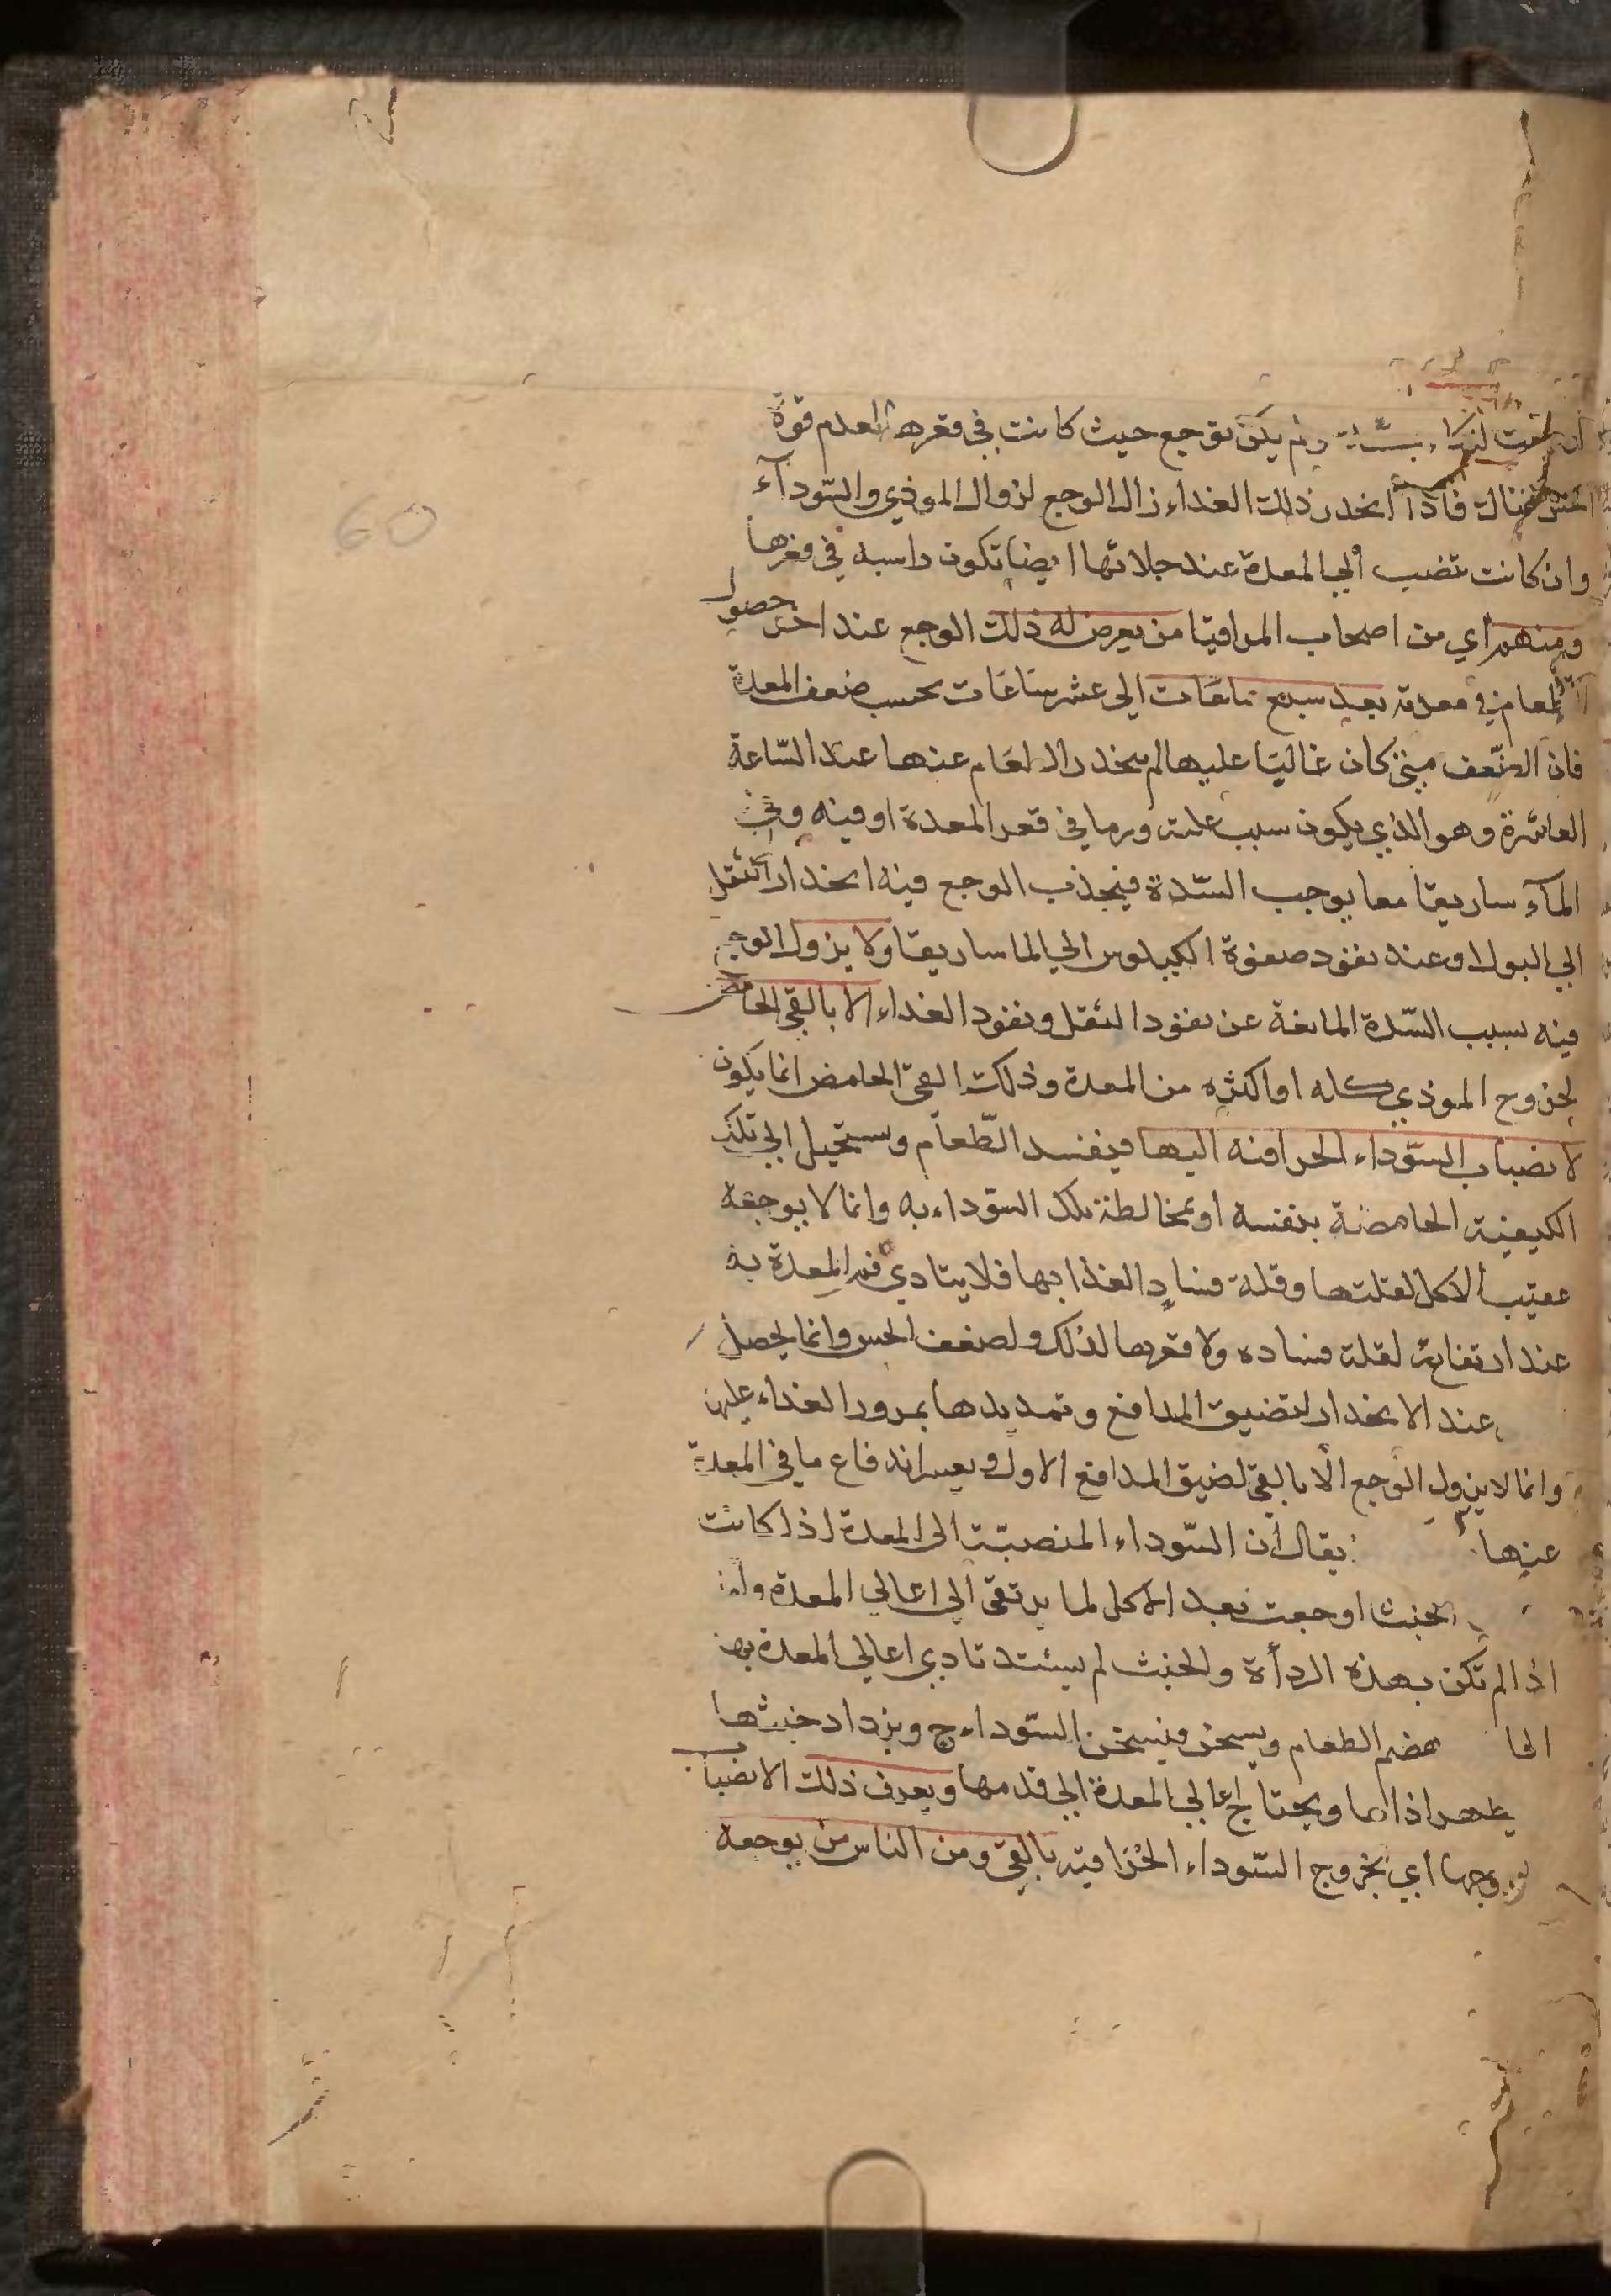 ولم يكن توجع حيث كانت في قعرها لعدم قوة
الحس هناك فاذا انحدر ذلك الغذاء زال الوجع لزوال الموذي والسّودآء
وان كانت تنصب الي المعدة عند خلائها ايضا تكون راسبه في قعرها
ومنهم اي من اصحاب المراقيا من يعرض له ذلك الوجع عند اخر حصول
الطعام في معدته بعد سبع ساعات الي عشر ساعات بحسب ضعف المعدة
فان الضّعف متي كان غالبا عليها لم ينحدر الطعام عنها عند السّاعة
العاشرة وهو الذي يكون سبب علته ورما في قعر المعدة او فيه وفي
المآء ساريقا معا يوجب السّدة فيجذب الوجع فيه انحدار الثقل
الي البول او عند نفود صفوة الكيلوس الي الماساريقا ولا يزول الوجع
فيه بسبب السّدة المانعة عن نفود الثقل ونفود الغداء الا بالقي الحامض
لخروج الموذي كله او اكثره من المعدة وذلك القيّ الحامض انما يكون
لانصباب السّوداء الحراقنه اليها فيفسد الطّعام ويستحيل الي تلك
الكيفية الحامضة بنفسه او بمخالطة تلك السّوداء به وانما لا يوجعه
عقيب الاكل لقلتها وقلة فساد الغذا بها فلا يتادي فم المعدة به
عند ارتفاعه لقلة فساده ولا قعرها لذلك ولضعف الحس وانما يحصل
عند الانحدار لتضيق المدافع وتمديدها بمرور الغداء عليه
وانما لا يزول الوجع الّا بالقيّ لضيق المدافع الاول ويعسر اندفاع ما في المعدة
عنها يقال ان السّوداء المنصبّة الى المعدة اذا كانت
الخبث اوجعت بعد الاكل لما يرتقى الي اعالي المعدة واما
اذا لم تكن بهذه الردأة والخبث لم يشتد تادي اعالي المعدة بها
الحا هضم الطعام ويسخن فيسخن السّوداء ح ويزداد خبثها
يظهر اذاها ويحتاج اعالي المعدة الي قدمها ويعرف ذلك الانصباب
بخروجها اي بخروج السّوداء الحراقيه بالقيّ ومن الناس من يوجعه
60